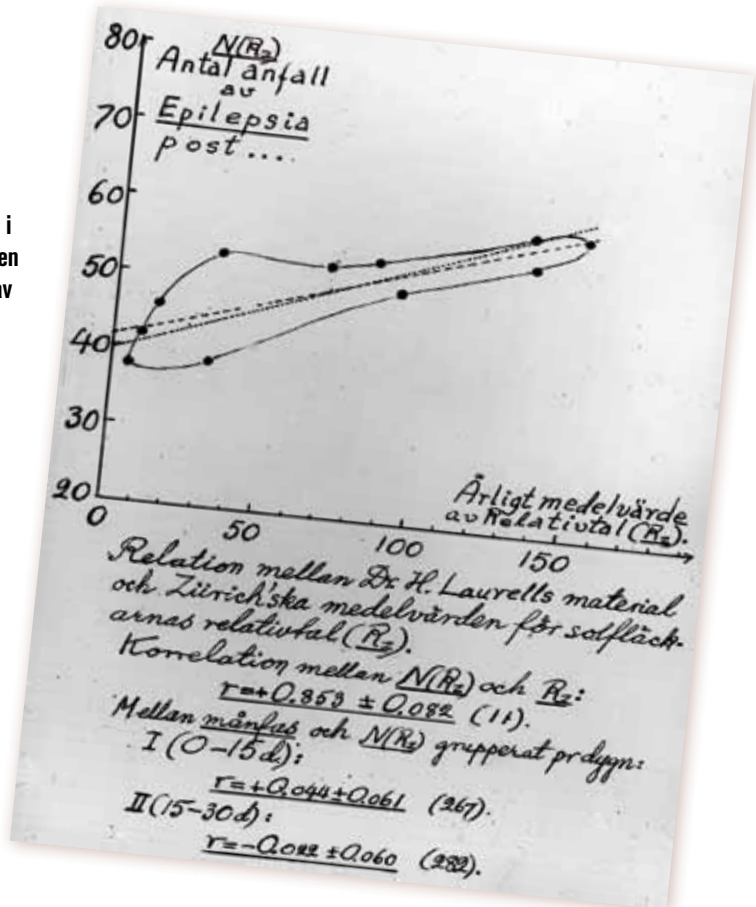 i
en
av
80
70
60
50
40
30
20
0
50
100
150
N(R_z)
Antal anfall
av
Epilepsia
post....
Årligt medelvärde
av Relativtal (R_z).
Relation mellan Dr H. Laurells material
och Zürich'ska medelvärden för solfläck-
arnas relativtal (R_z).
Korrelation mellan N(R_z) och R_z:
r=+0.853 ± 0.082 (11).
Mellan månfas och N(R_z) grupperat pr dygn:
I (0-15d):
r=+0,044±0.061 (267).
II (15-30d):
r=-0.022 ±0.060 (282).